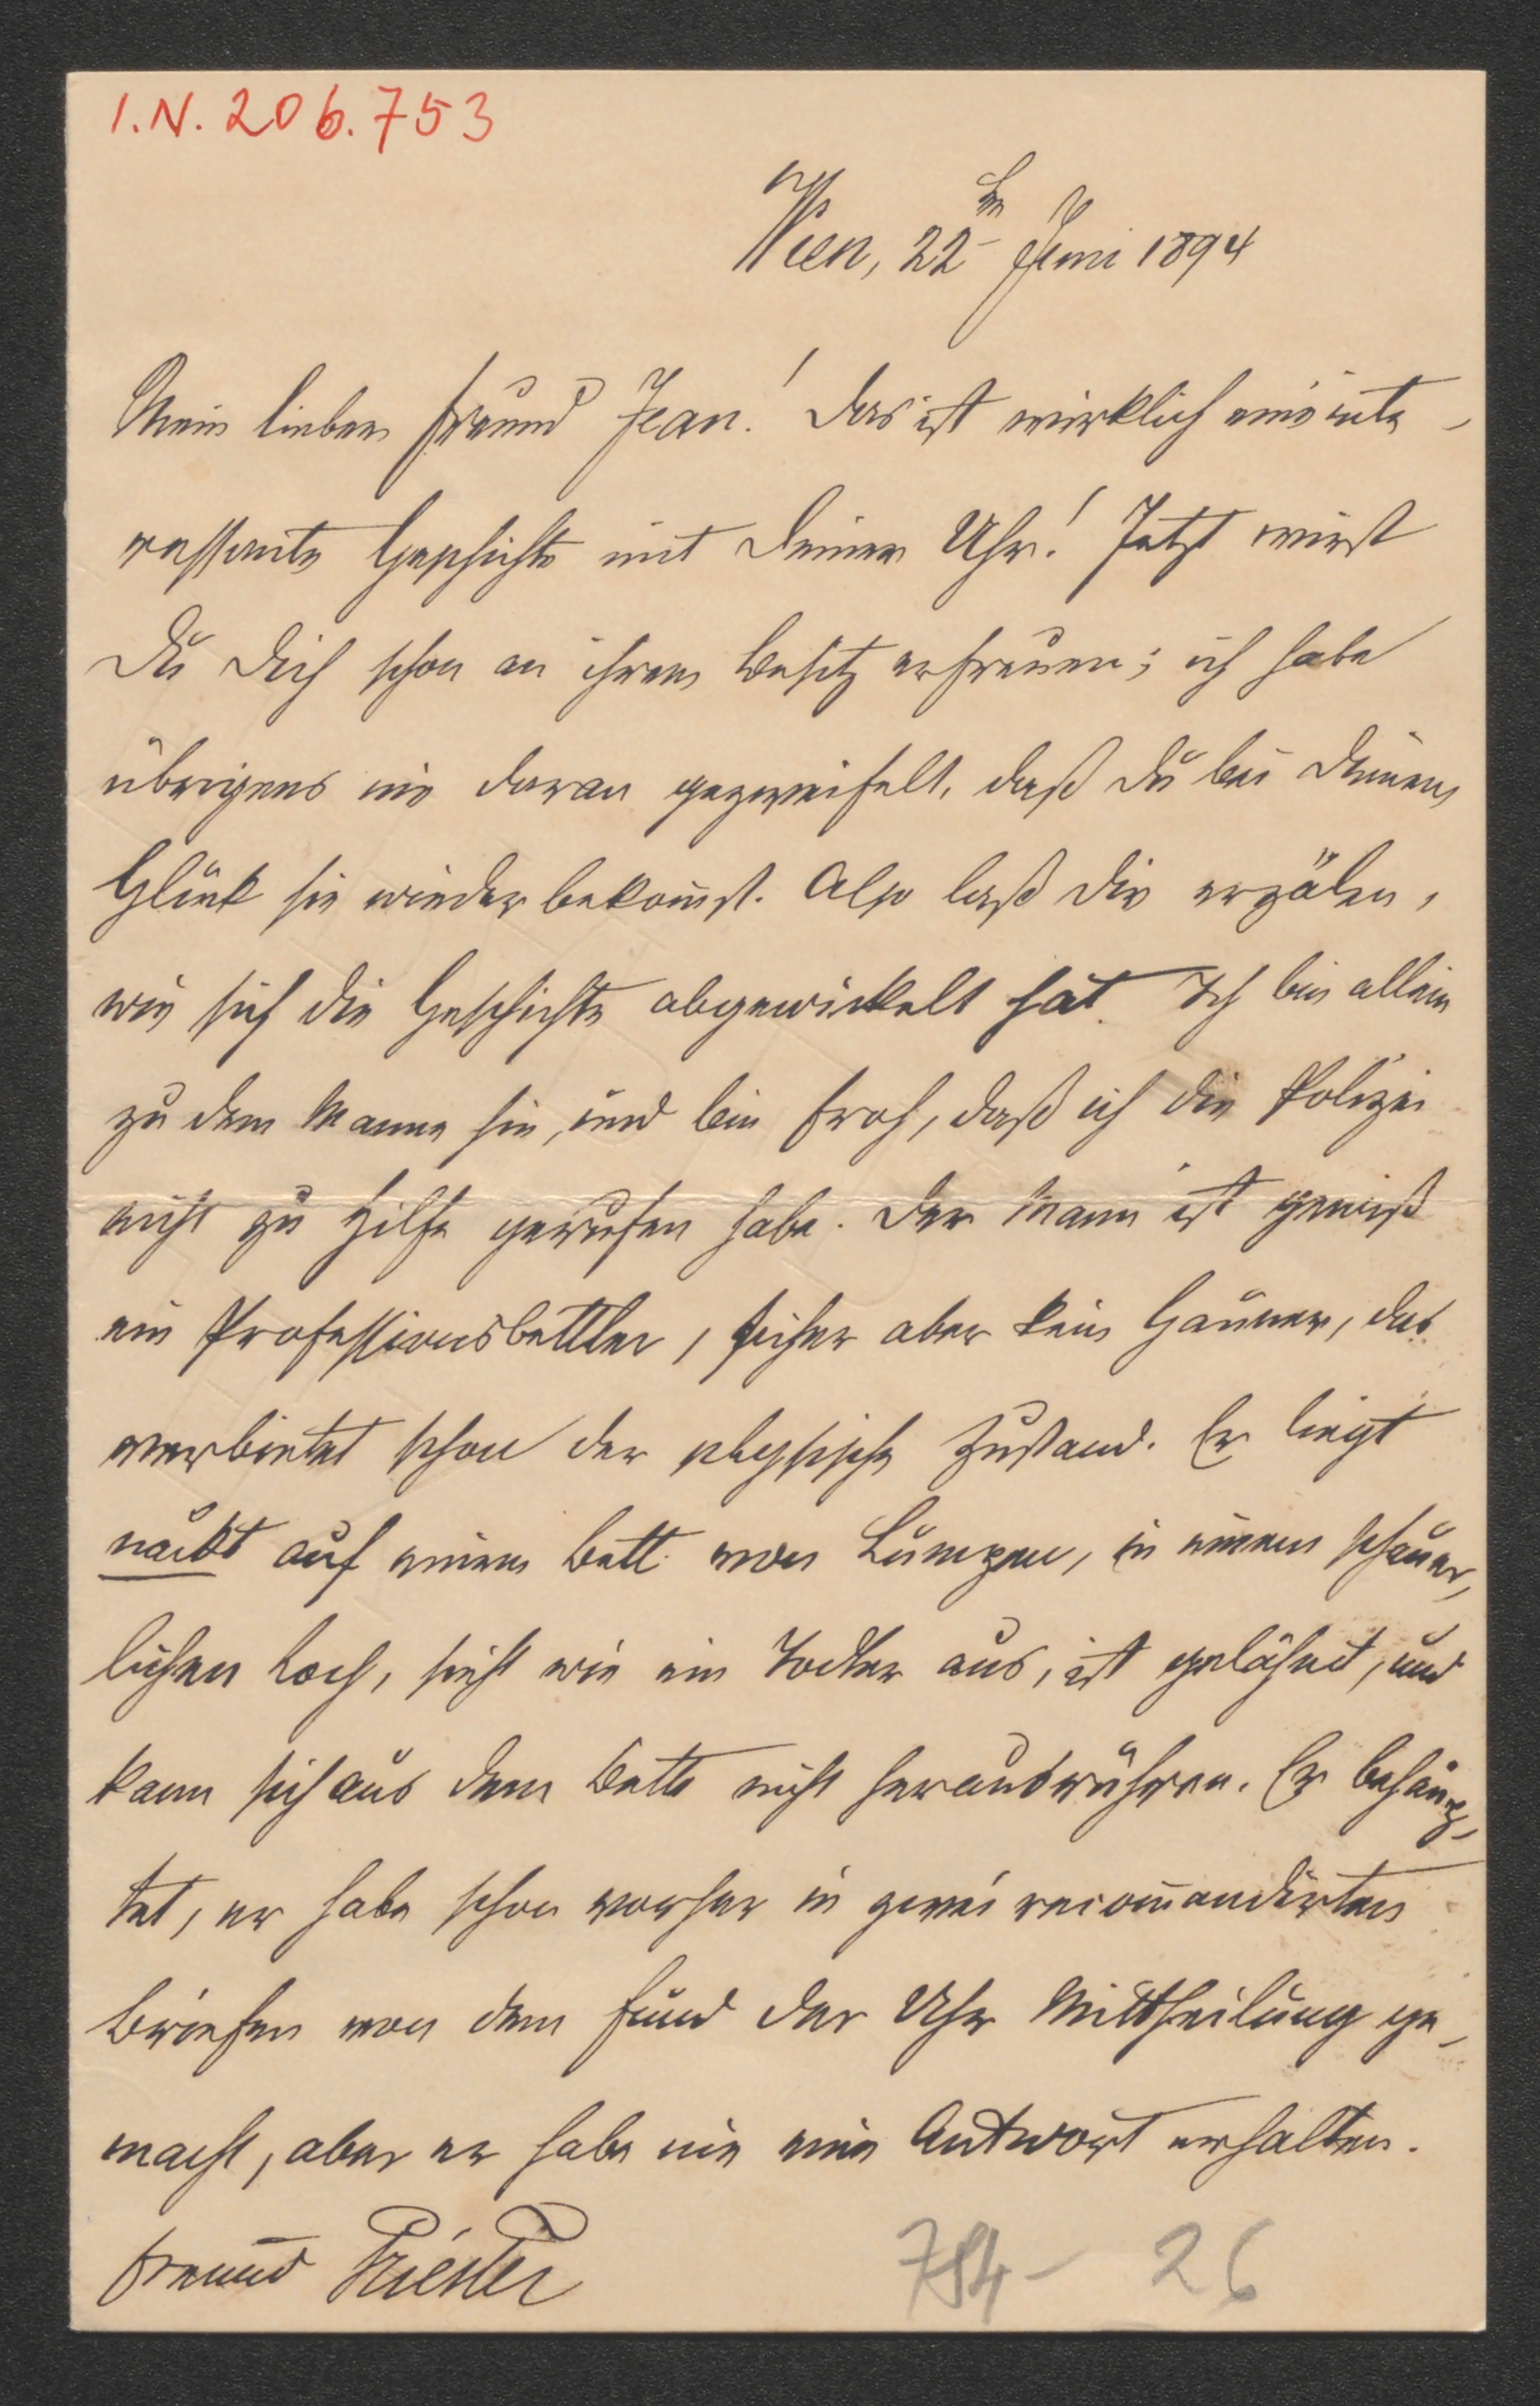 I.N. 206.753
Wien, 22ten Juni 1894
Mein lieber Freund Jean! Das ist wirklich eine inte-
ressante Geschichte mit Deiner Uhr! Jetzt wirst
Du Dich schon an ihrem Besitz erfreuen; ich habe
übrigens nie daran gezweifelt, daß Du bei Deinem
Glück sie wieder bekom̅st. Also laß Dir erzälen,
wie sich die Geschichte abgewickelt hat. Ich bin allein
zu dem Manne hin, und bin froh, daß ich die Polizei
nicht zu Hilfe gerufen habe. Der Mann ist gewiß
ein Professionsbettler, sicher aber kein Gauner, das
verbietet schon der physische Zustand. Er liegt
nackt auf einem Bett von Lumpen, in einem schauer-
lichen Loch, sieht wie ein Todter aus, ist gelähmt, und
kann sich aus dem Bette nicht herausrühren. Er behaup-
tet, er habe schon vorher in zwei recom̅andirten
Briefen von dem Fund der Uhr Mittheilung ge-
macht, aber er habe nie eine Antwort erhalten.
Freund Priester
754- 26